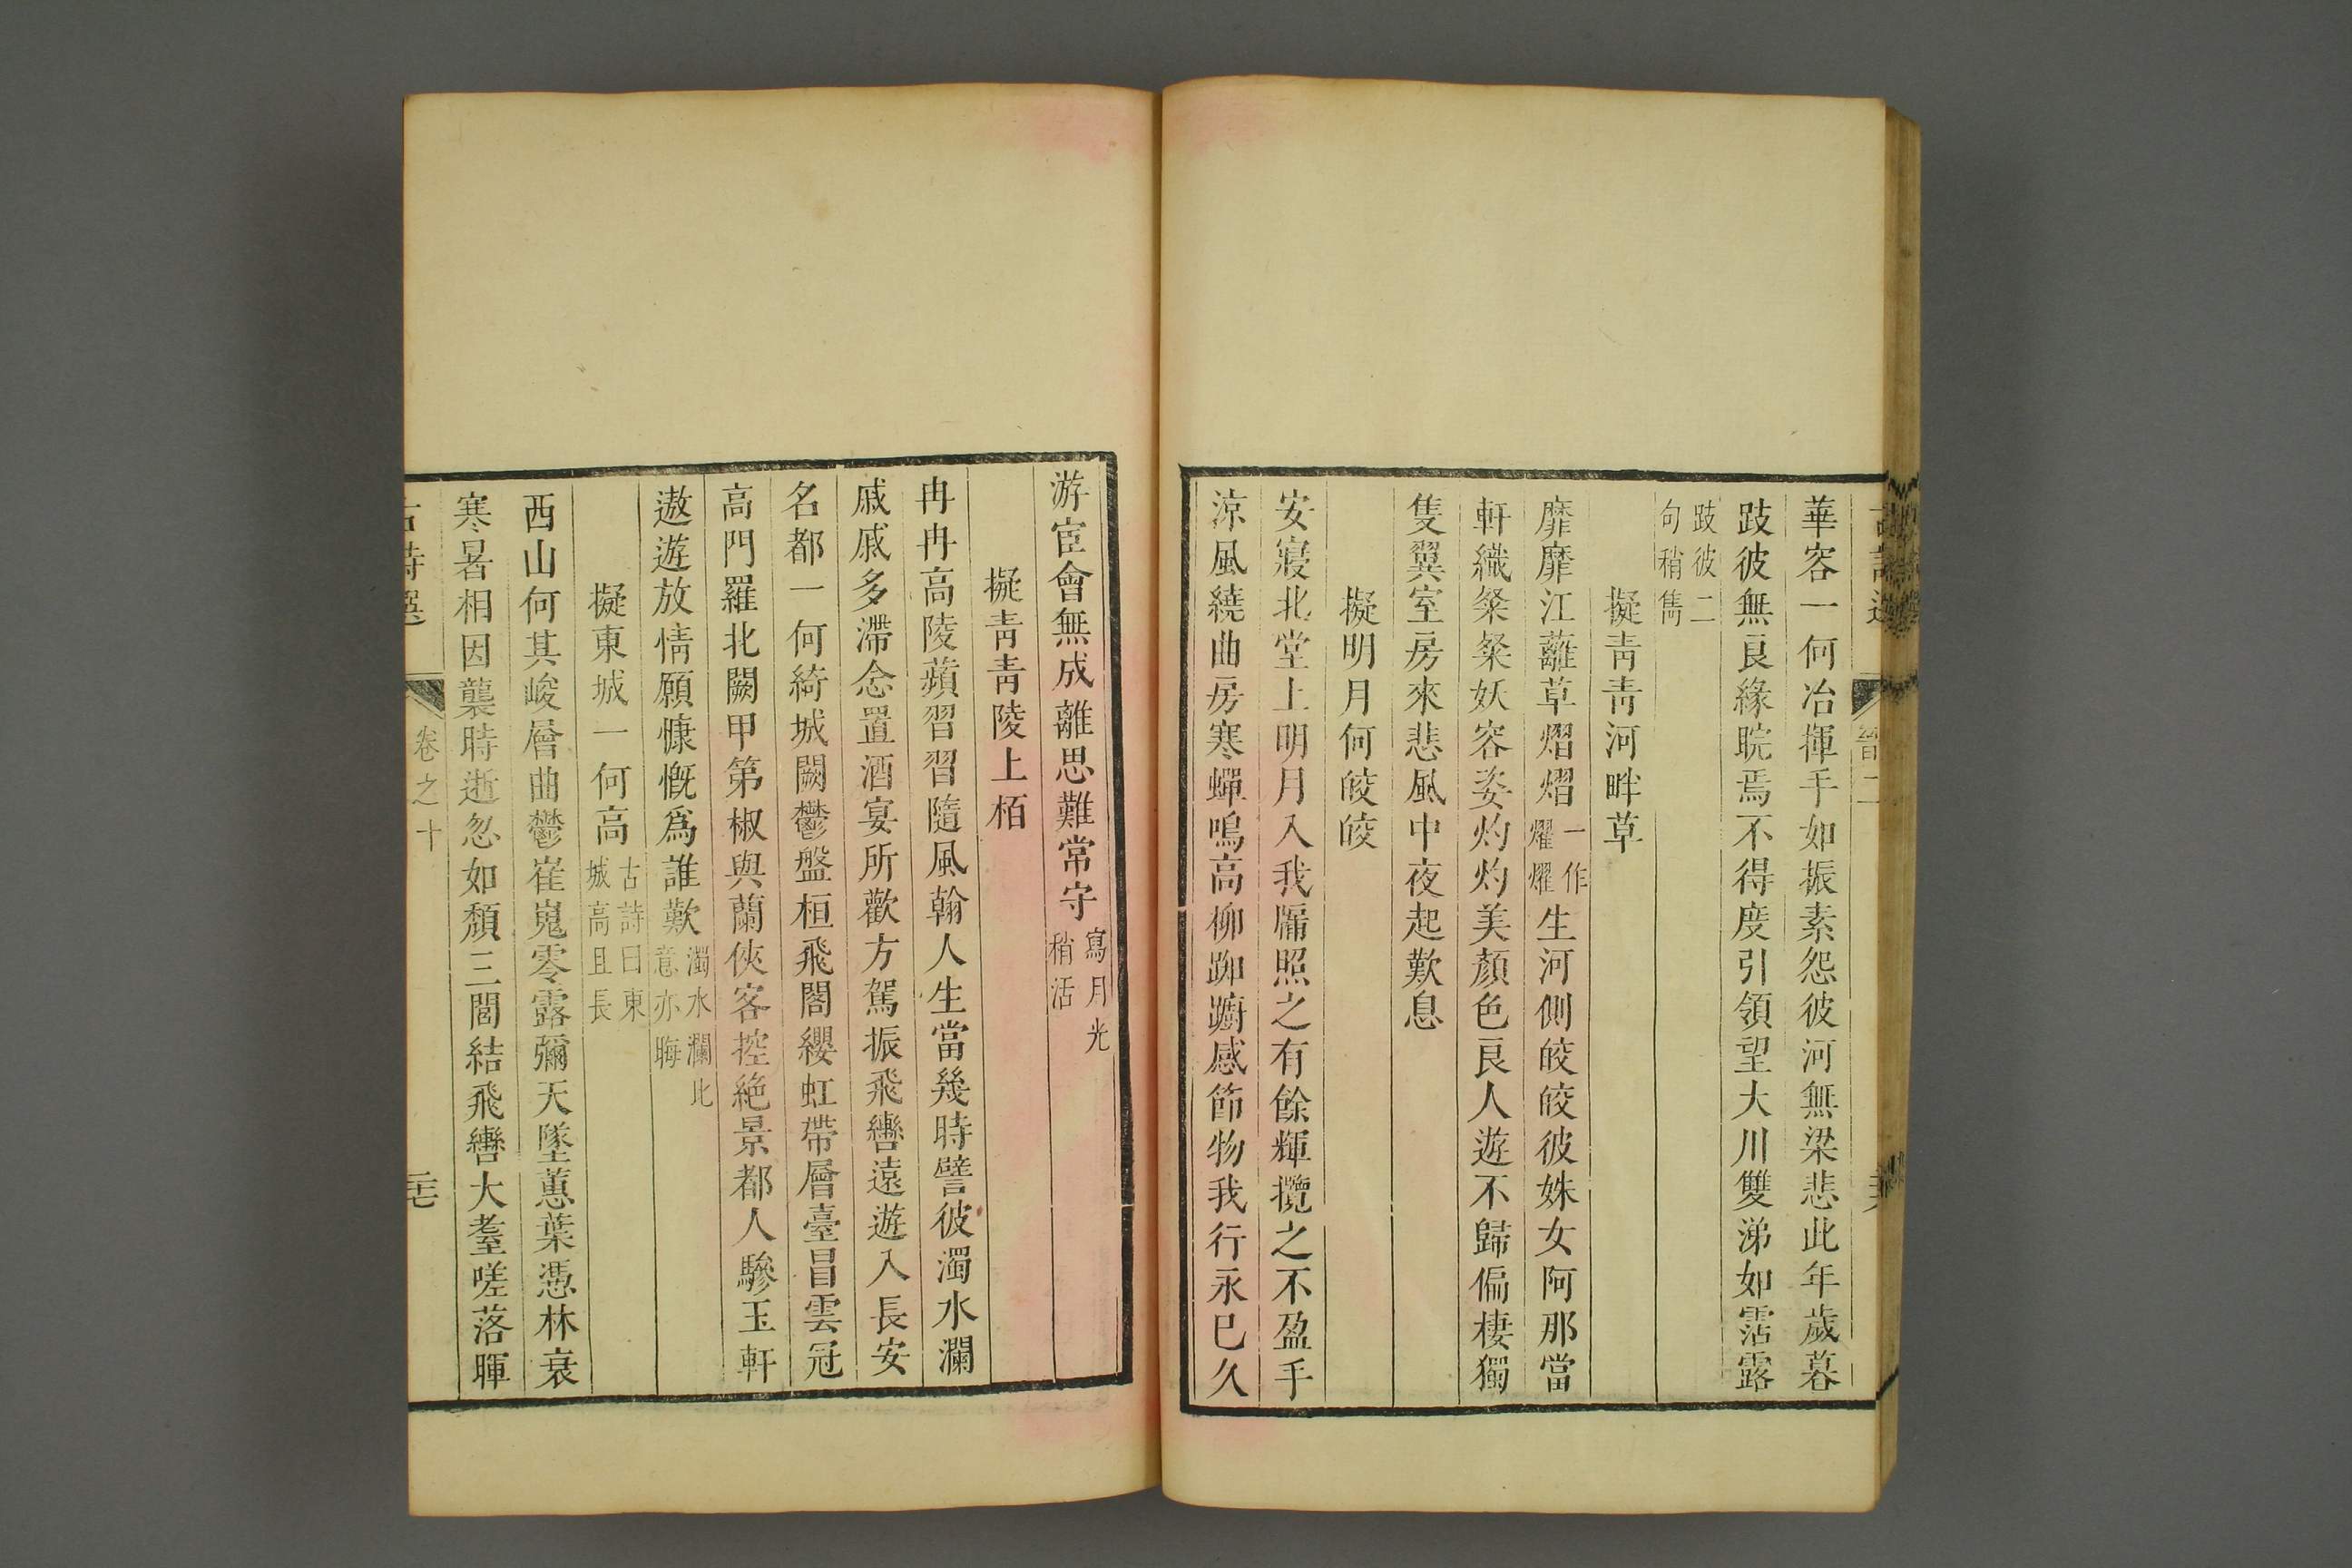 華容一何冶揮手如振素怨彼河無梁悲此年歲暮
跂彼無良緣睆焉不得度引領望大川雙涕如霑露
跂彼二
句稍雋
擬靑靑河畔草
靡靡江蘺草熠熠一作燿燿生河側皎皎彼姝女阿那當
軒織粲粲妖容姿灼灼美顏色良人遊不歸偏棲獨
隻翼室房來悲風中夜起歎息
擬明月何皎皎
安寢北堂上明月入我牖照之有餘輝攬之不盈手
涼風繞曲房寒蟬鳴高柳踟躕感節物我行永巳久
游宦會無成離思難常守寫月光稍活
擬靑靑陵上栢
冉冉高陵蘋習習隨風翰人生當幾時譬彼濁水瀾
戚戚多滯念置酒宴所歡方駕振飛轡遠遊入長安
名都一何綺城闕鬱盤桓飛閣纓虹帶層臺冒雲冠
高門羅北闕甲第椒與蘭俠客控絕景都人驂玉軒
遨遊放情願慷慨爲誰歎濁水瀾比意亦晦
擬東城一何高古詩曰東城高且長
西山何其峻層曲鬱崔嵬零露彌天墜蕙葉憑林衰
寒暑相因襲時逝忽如頹三閭結飛轡大耋嗟落暉
古詩選 卷之十